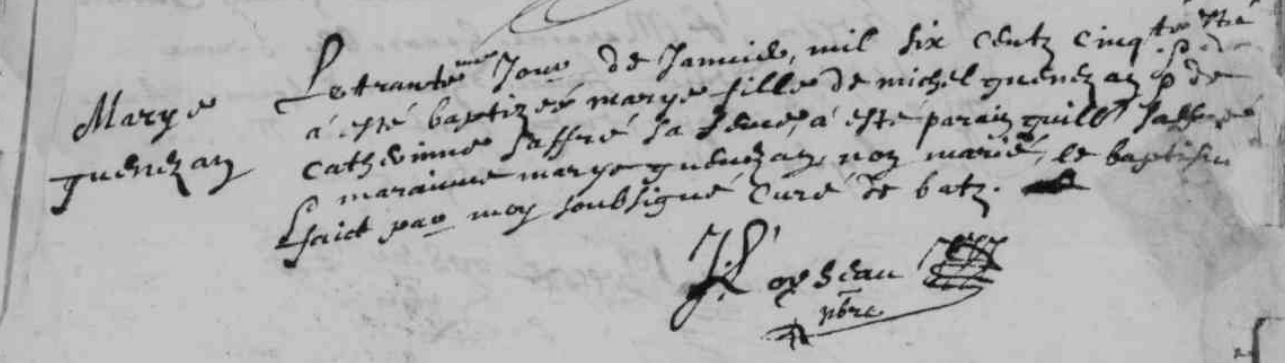 Marye
guenezan
Le trantiesme Jour de Janvier, mil six centz cinq.te
a esté baptizeé marye fille de michel guenezan & de
catherinne saffré sa femme, a esté parain guill saffré
maraine marye guenezan, non marié, le baptesme
faict par moy soubsigné curé de batz.
J. Loyseau
pbre